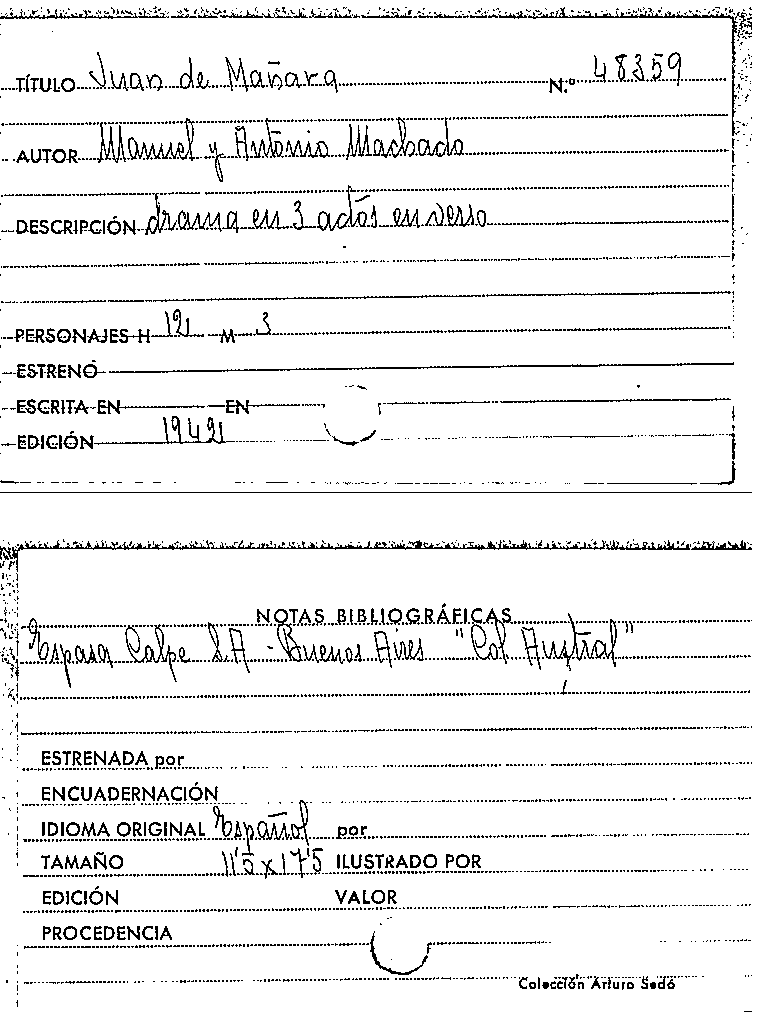 TÍTULO Juan de Mañara N.º 48359
AUTOR Manuel y Antonio Machado
DESCRIPCIÓN drama en 3 actos en verso
PERSONAJES H 12 M 3
ESTRENÓ
ESCRITA EN EN
EDICIÓN 1942
NOTAS BIBLIOGRÁFICAS
Espasa Calpe S.A - Buenos Aires "Col Austral"
ESTRENADA por
ENCUADERNACIÓN
IDIOMA ORIGINAL Español por
TAMAÑO 11'5 x 17'5 ILUSTRADO POR
EDICIÓN VALOR
PROCEDENCIA
Colección Arturo Sedó